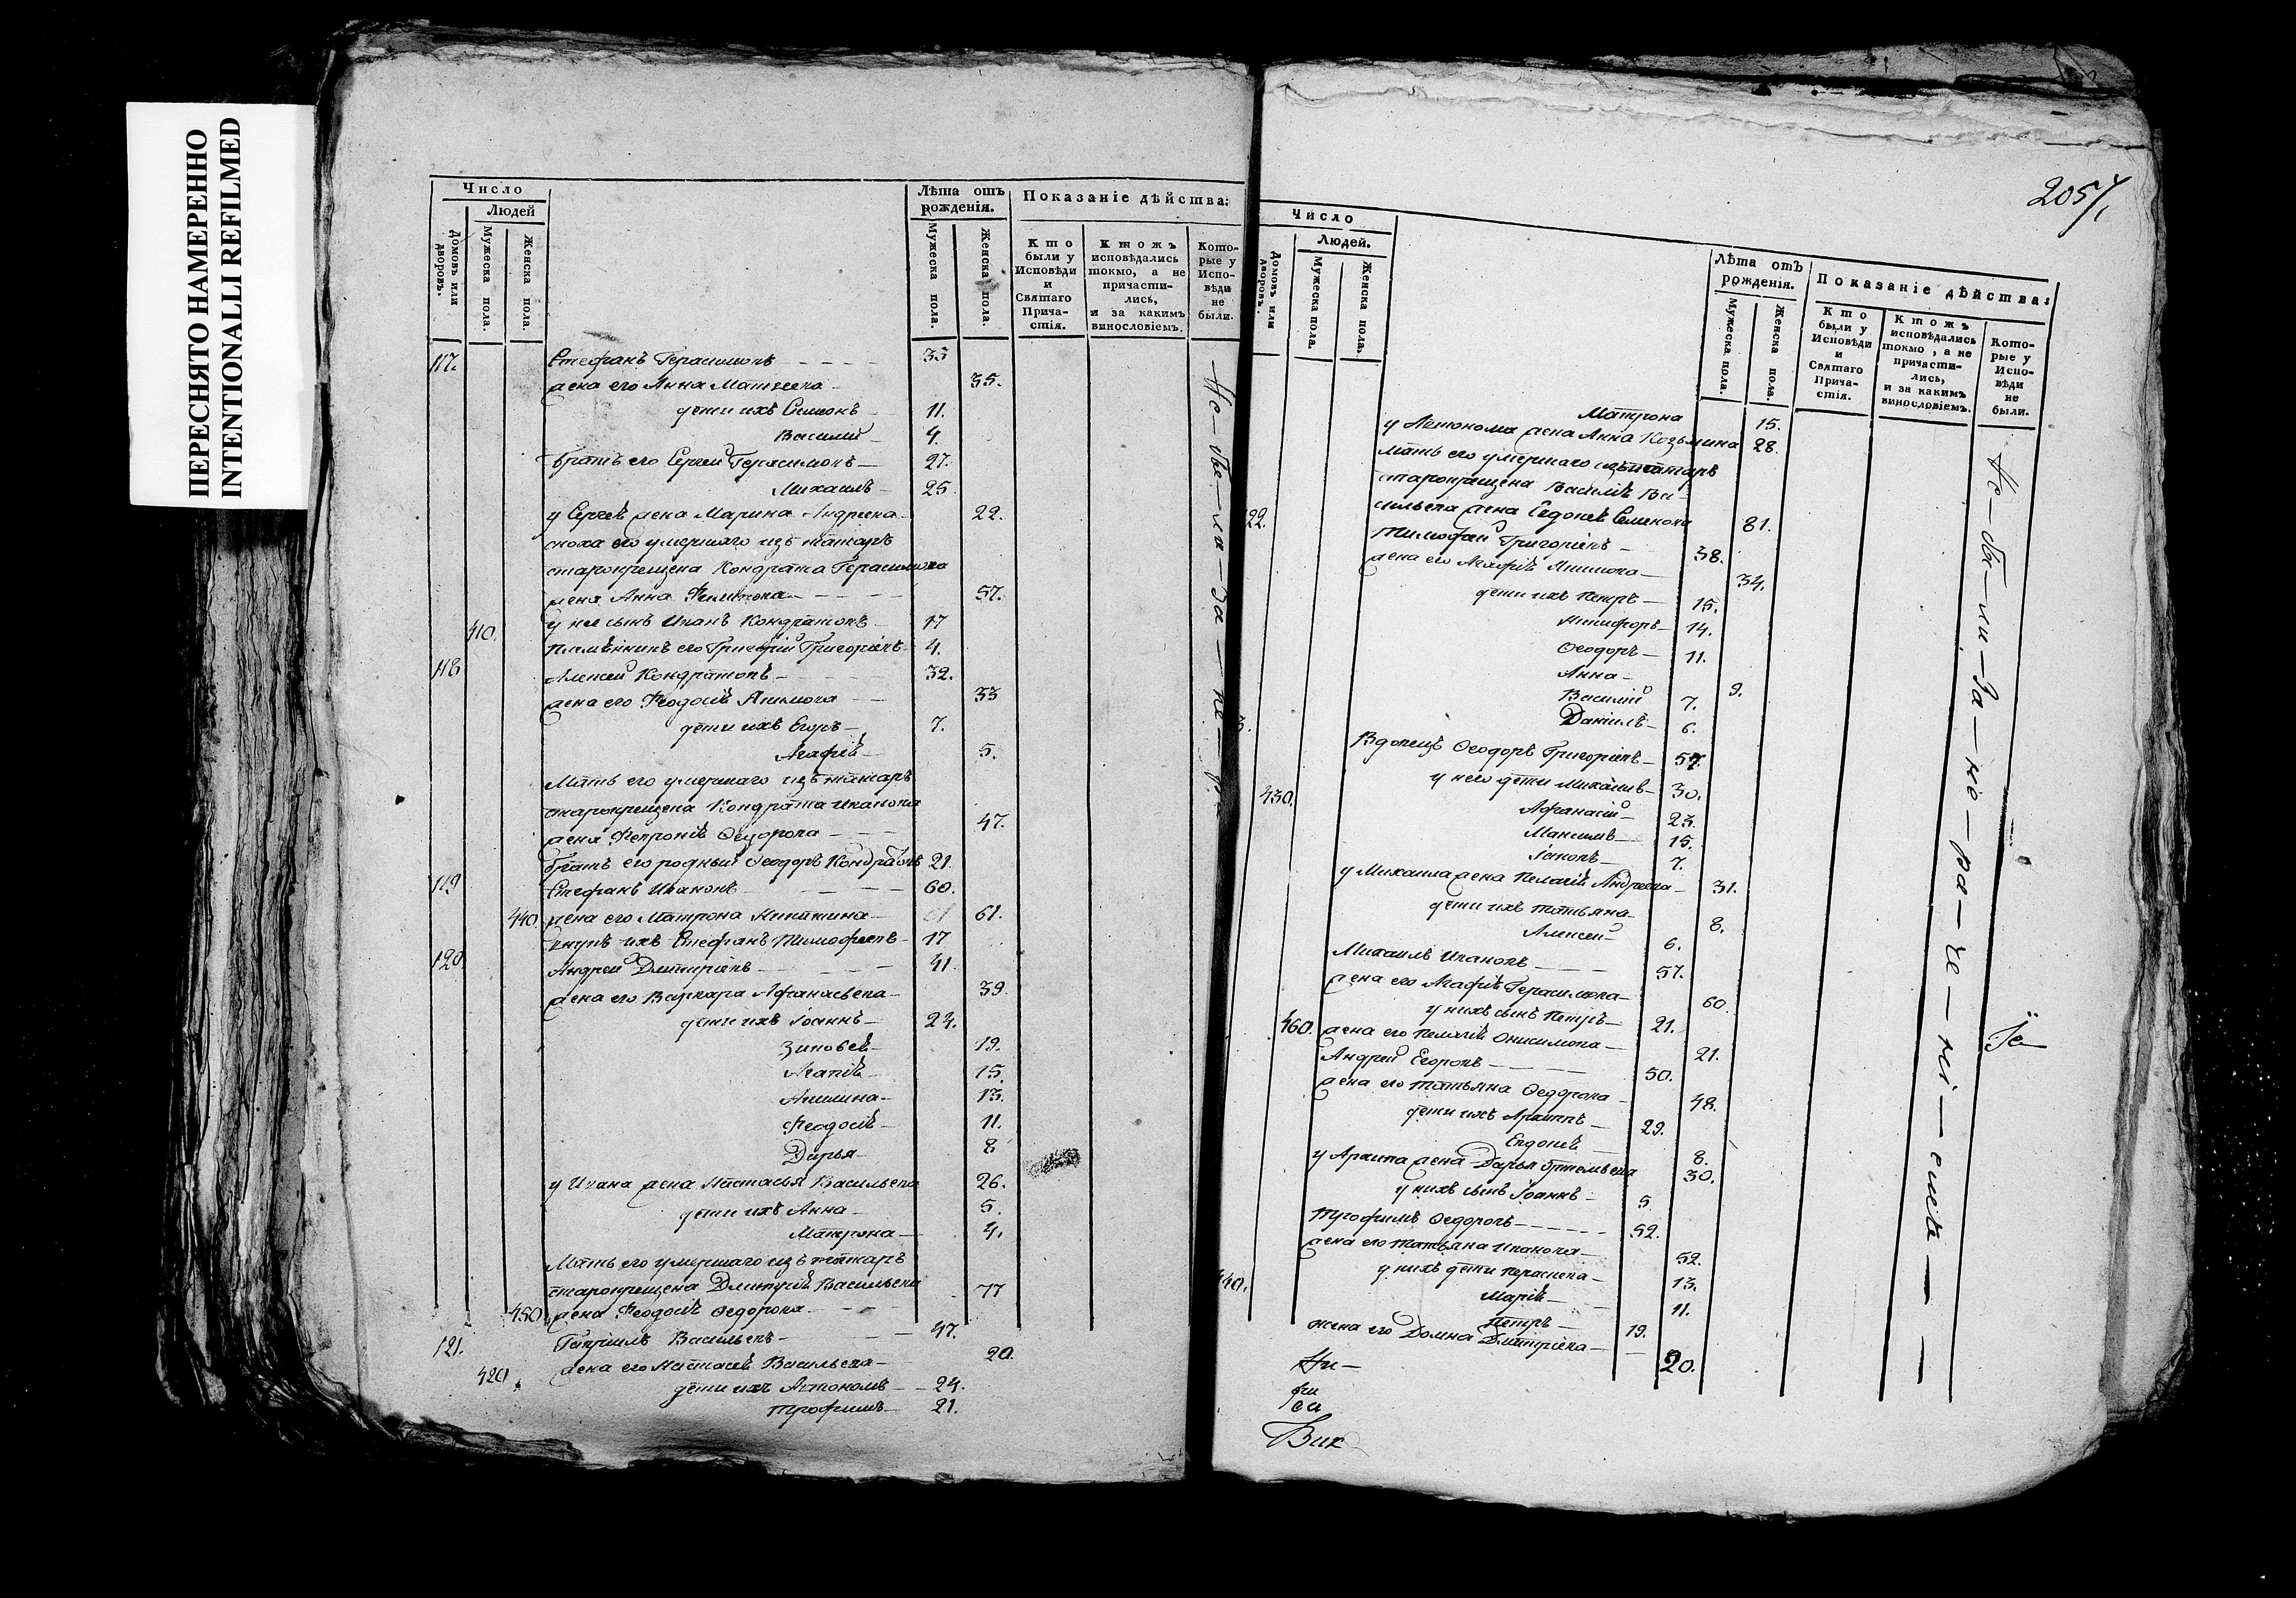 ПЕРЕСНЯТО НАМЕРЕННО
INTENTIONALLI REFILMED
Число
Людей
Домовъ или дворовъ.
Мужеска пола.
Женска пола.
Лѣта отъ рожденія.
Мужеска пола.
Женска пола.
Показаніе дѣйства:
Кто были у Исповѣди и Святаго Прича-стія.
Ктожъ исповѣдались токмо, а не причасти-лись, и за какимъ винословіемъ.
Кото-рые у Испо-вѣди не были.
117. Стефанъ Герасимовъ 33
жена его Анна Матвеева 35.
дети ихъ Симионъ 11.
Василий 4.
братъ его Сергей Герасимовъ 27.
Михаилъ 25
у Сергея жена Марина Андреева 22.
сноха его умершаго изъ татаръ
старокрещена Кондрата Герасимова
жена Анна 57.
410. у нее сынъ Иванъ Кондратовъ 17
племѣнникъ его Григорий Григориевъ 4.
118 Алексей Кондратовъ 32.
жена его Феодосія Якимова 33
дети ихъ Егоръ 7.
Агафия 5.
Мать его умершаго изъ татаръ
старокрещена Кондрата Иванова
жена Февронія Федорова 47.
братъ его родный Феодоръ Кондратовъ 21.
119 Стефанъ Ивановъ 60.
440. жена его Матрона Никитина 61.
внукъ ихъ Стефанъ Тимофеевъ 17
120 Андрей Димитріевъ 41.
жена его Варвара Афанасьева 39.
дети ихъ Іоаннъ 24.
Зиновья 19.
Агапия 15.
Акилина 13.
Феодосія 11.
Дарья 8
у Ивана жена Настасья Васильева 26.
дети ихъ Анна 5.
Матрона 4.
Мать его умершаго изъ татаръ
старокрещена Димитрія Васильева 77
450. жена Феодосія Федорова
121. Гавріилъ Васильевъ 47.
жена его Настасья Васильева 20.
420. дети ихъ Автономъ 24.
Трофимъ 21.
Не-бы-ли-за-не-
2057
Число
Людей.
Домовъ или дворовъ.
Мужеска пола.
Женска пола.
Лѣта отъ рожденія.
Мужеска пола.
Женска пола.
Показаніе дѣйства:
Кто были у Исповѣди и Святаго Прича-стія.
Ктожъ исповѣдались токмо, а не причасти-лись, и за какимъ винословіемъ.
Кото-рые у Испо-вѣди не были.
Матрона 15.
у Автонома жена Анна Козьмина 28.
мать его умершаго изъ татаръ
старокрещена Василія Ва-
сильева жена Евдокея Семенова 81.
22. Тимофей Григоріевъ 38.
жена его Агафія Якимова 34.
дети ихъ Петръ 15.
Никифоръ 14.
Феодоръ 11.
Анна 9.
Василий 7.
Данилъ 6.
Вдовецъ Феодоръ Григоріевъ 57.
430. у него дети Михаилъ 30.
Афанасий 23.
Максимъ 15.
Іаковъ 7.
у Михаила жена Пелагія Андреева 31.
дети ихъ Татьяна 8.
Алексей 6.
Михаилъ Ивановъ 57.
жена его Агафія Герасимова 60.
у нихъ сынъ Петръ 21.
460. жена его Пелагія Онисимова 21.
Андрей Егоровъ 50.
жена его Татьяна Федорова 48.
дети ихъ Архипъ 29.
Евдокея 8.
у Архипа жена Дарья 30.
у нихъ сынъ Іоаннъ 5
Трофимъ Федоровъ 52.
жена его Татьяна Иванова 52.
у нихъ дети Параскева 13.
440. Марія 11.
Петръ 19.
жена его Домна Димитріева 20.
Не-бы-ли-за-не-ра-че-ні-емъ
Вик